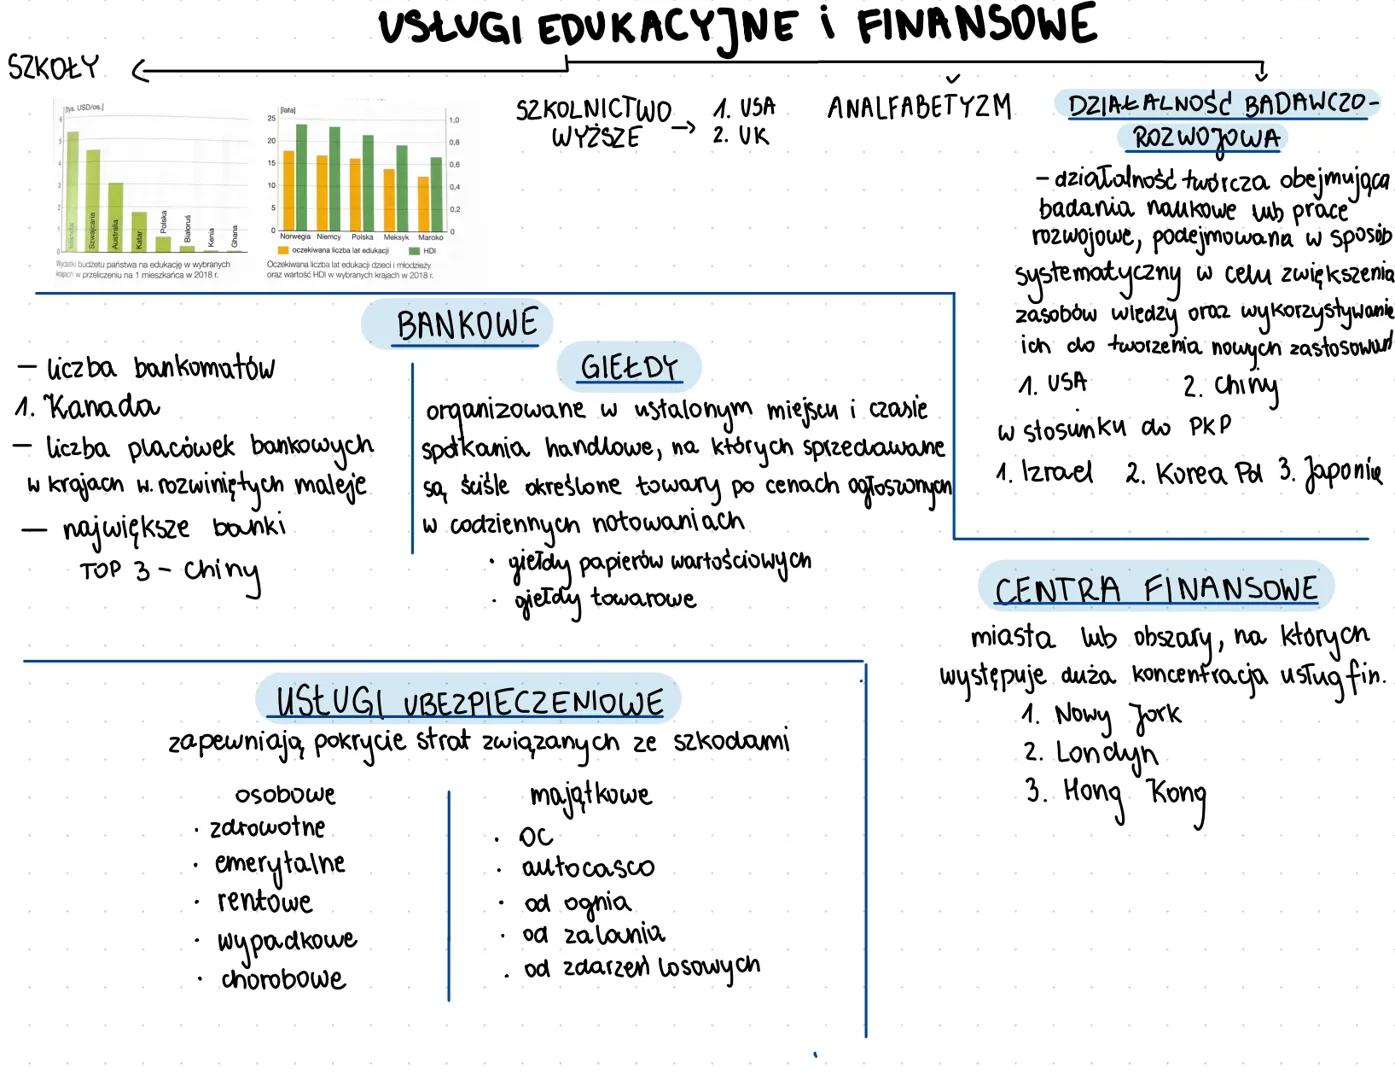 USŁUGI EDUKACYJNE i FINANSOWE
SZKOŁY
[tys. USD/os.]
6
5
4
3
2
1
0
Islandia
Szwajcaria
Australia
Katar
Polska
Białoruś
Kenia
Ghana
Wydatki budżetu państwa na edukację w wybranych
krajach w przeliczeniu na 1 mieszkańca w 2018 r.
[lata]
25
20
15
10
5
0
1,0
0,8
0,6
0,4
0,2
0
Norwegia Niemcy Polska Meksyk Maroko
oczekiwana liczba lat edukacji HDI
Oczekiwana liczba lat edukacji dzieci i młodzieży
oraz wartość HDI w wybranych krajach w 2018 r.
SZKOLNICTWO
WYŻSZE →
1. USA
2. UK
ANALFABETYZM
DZIAŁALNOŚĆ BADAWCZO-
ROZWOJOWA
- działalność twórcza obejmująca
badania naukowe lub prace
rozwojowe, podejmowana w sposób
systematyczny w celu zwiększenia
zasobów wiedzy oraz wykorzystywanie
ich do tworzenia nowych zastosowań
1. USA 2. Chiny
w stosunku do PKP
1. Izrael 2. Korea Pd 3. Japonię
BANKOWE
- liczba bankomatów
1. Kanada
- liczba placówek bankowych
w krajach w. rozwiniętych maleje
- największe banki
TOP 3 - Chiny
GIEŁDY
organizowane w ustalonym miejscu i czasie
spotkania handlowe, na których sprzedawane
są ściśle określone towary po cenach ogłoszonych
w codziennych notowaniach
· giełdy papierów wartościowych
· giełdy towarowe
CENTRA FINANSOWE
miasta lub obszary, na których
występuje duża koncentracja usług fin.
1. Nowy Jork
2. Londyn
3. Hong Kong
USŁUGI UBEZPIECZENIOWE
zapewniają pokrycie strat związanych ze szkodami
osobowe
· zdrowotne
· emerytalne
· rentowe
· wypadkowe
· chorobowe
majątkowe
· OC
· autocasco
· od ognia
· od zalania
· od zdarzeń losowych